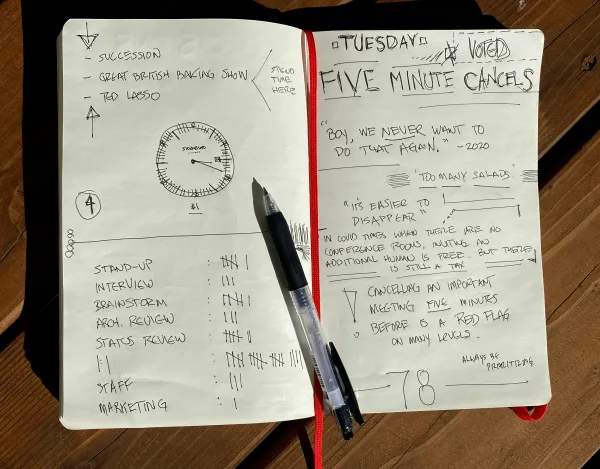 - SUCCESSION
- GREAT BRITISH BAKING SHOW
- TED LASSO
SPEND
TIME
HERE
31
4
STAND-UP :
INTERVIEW :
BRAINSTORM :
ARCH. REVIEW :
STATUS REVIEW :
1:1 :
STAFF :
MARKETING :
TUESDAY
VOTED
FIVE MINUTE CANCELS
"BOY, WE NEVER WANT TO
DO THAT AGAIN." -2020
'TOO MANY SALADS'
"IT'S EASIER TO
DISAPPEAR"
IN COVID TIMES WHEN THERE ARE NO
CONFERENCE ROOMS, INVITING AN
ADDITIONAL HUMAN IS FREE. BUT THERE
IS STILL A TAX
! CANCELLING AN IMPORTANT
MEETING FIVE MINUTES
BEFORE IS A RED FLAG
ON MANY LEVELS.
ALWAYS BE
PRIORITIZING
78